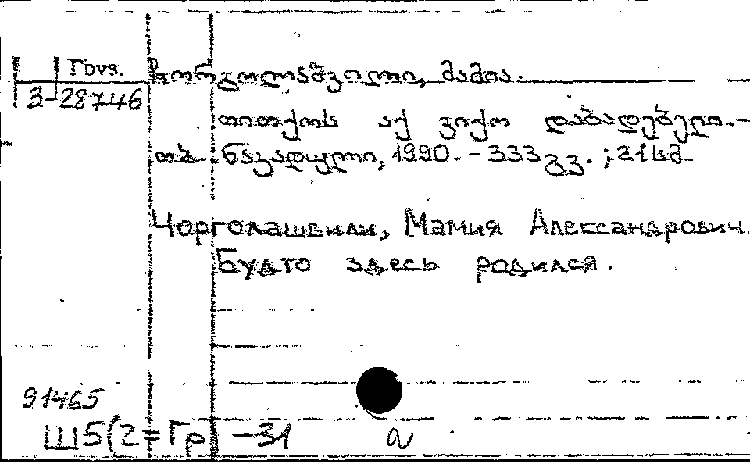 Груз.
3-28746
ჩორგოლაშვილი, მამია.
თითქოს აქ ვიყო დაბადებული.-
თბ. ნაკადული, 1990. - 333 გვ. ; 21 სმ
Чорголашвили, Мамия Александрович.
Будто здесь родился.
91465
Ш5(2=Гр) -31 а